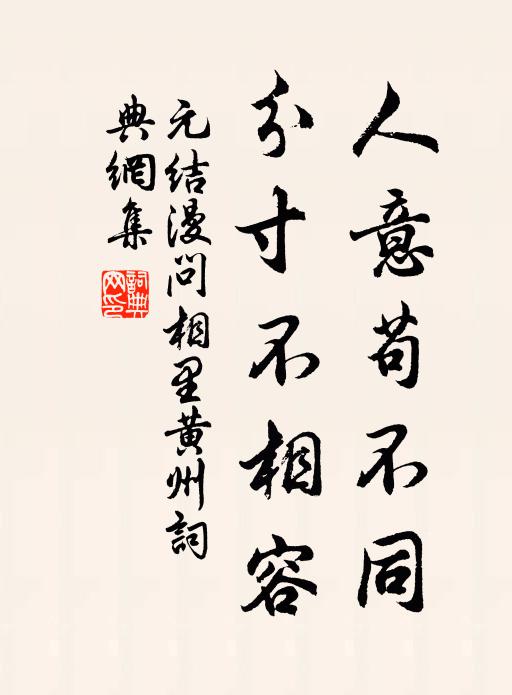 人意苟不同
分寸不相容
元结漫问相里黄州詞
典網集
詞典網印